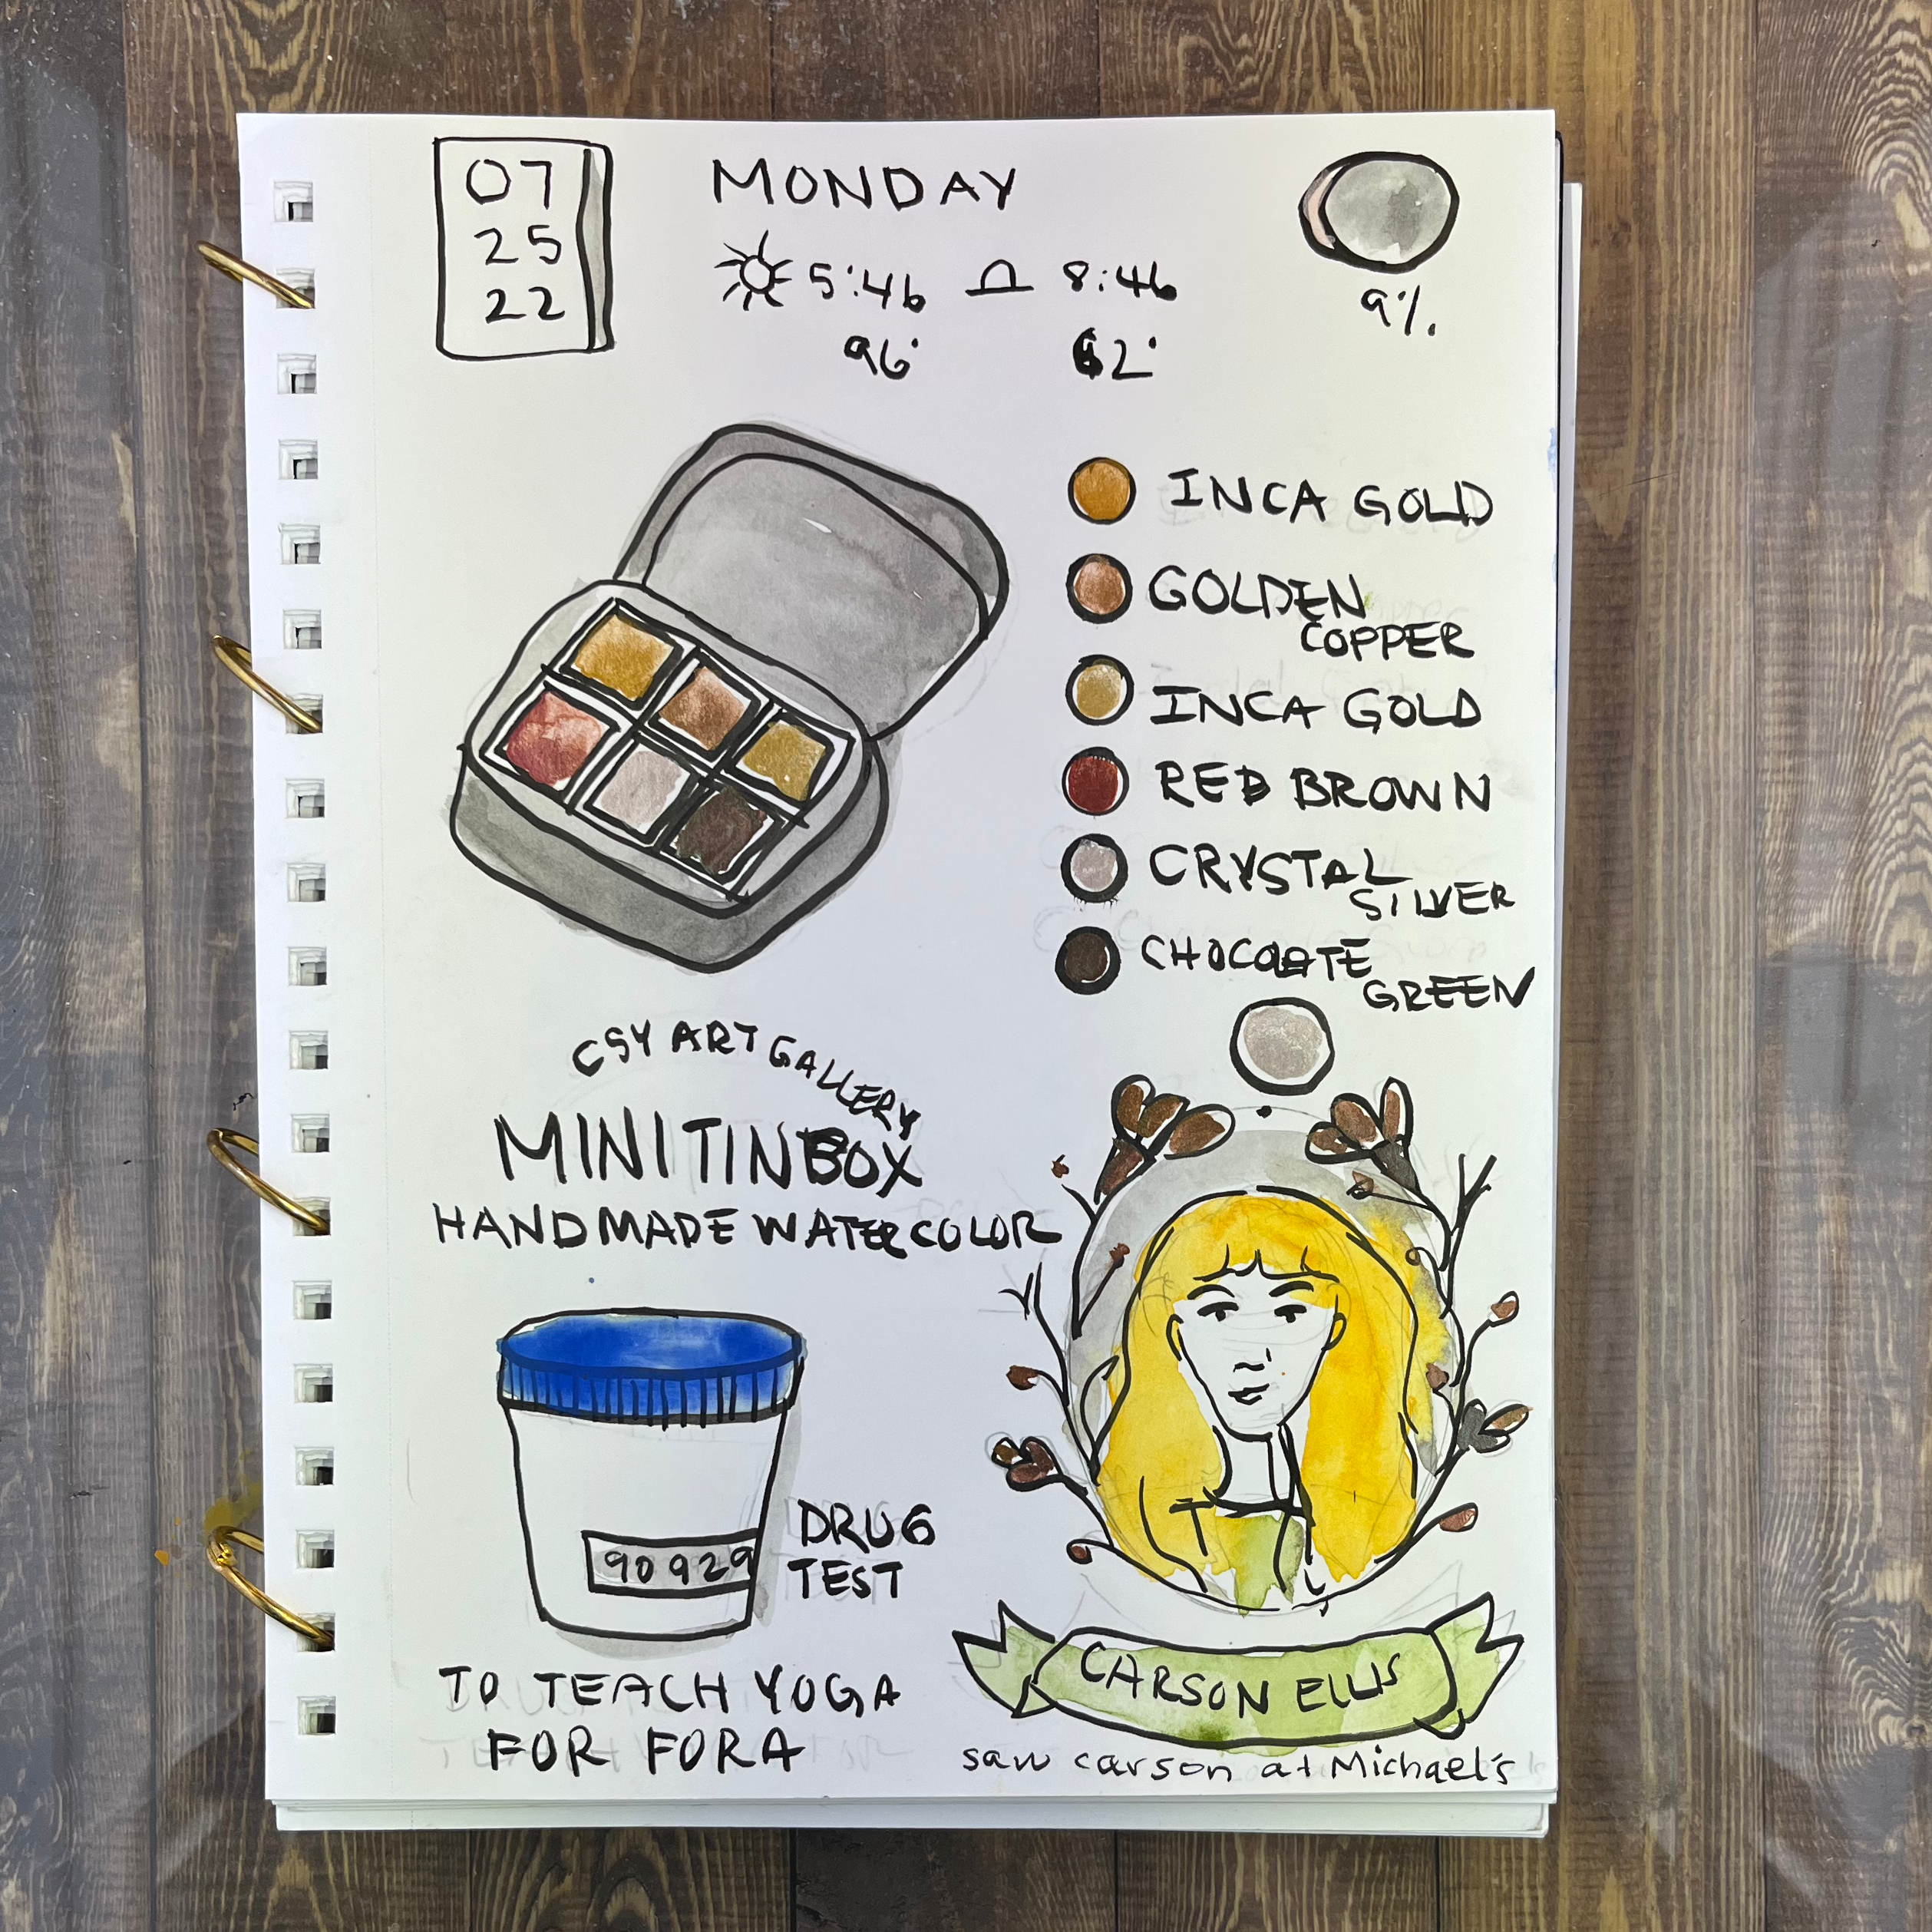 07
25
22
MONDAY
5:46 8:46
96° 62°
9%
INCA GOLD
GOLDEN
COPPER
INCA GOLD
RED BROWN
CRYSTAL
SILVER
CHOCOLATE
GREEN
CSY ART GALLERY
MINI TIN BOX
HANDMADE WATERCOLOR
90929
DRUG
TEST
TO TEACH YOGA
FOR FORA
CARSON ELLIS
saw carson at Michael's